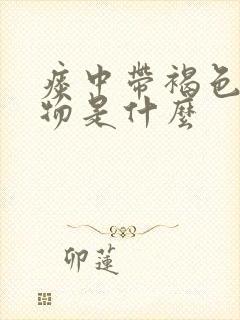 痰中带褐色
物是什麼
卯蓮